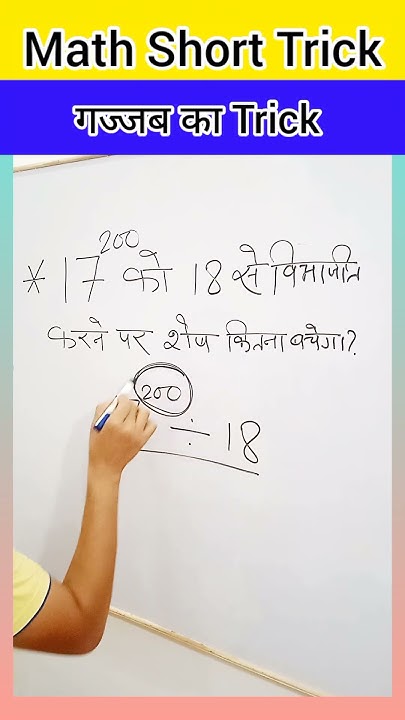 Math Short Trick
गज्जब का Trick
* 17^200 को 18 से विभाजीत
करने पर शेष कितना बचेगा?
200 ÷ 18